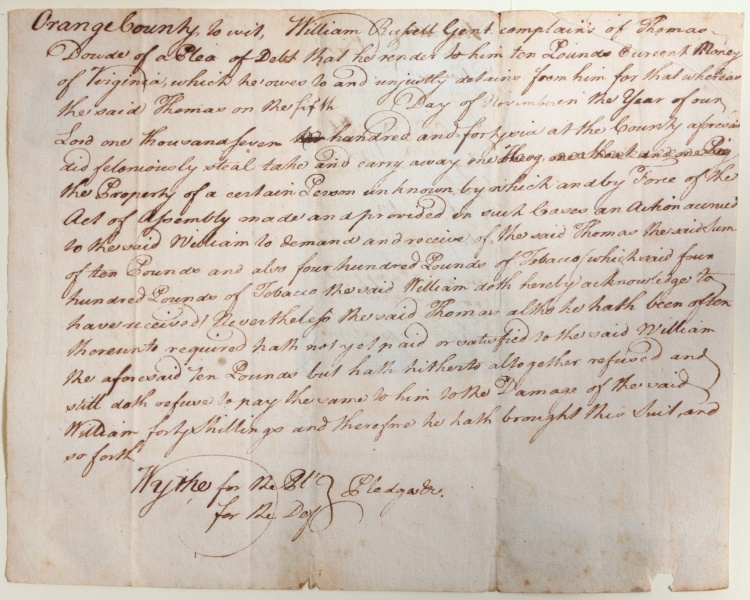 Orange County, to wit, William Russell Gent complains of Thomas
Dowde of a Plea of Debt that he render to him ten Pounds Current Money
of Virginia, which he owes to and unjustly detains from him for that whereas
the said Thomas on the fifth Day of November in the Year of our
Lord one thousand seven hundred and forty six at the County aforesaid
did feloniously steal take and carry away one Hog one Shoat and one Pig
the Property of a certain Person unknown by which and by Force of the
Act of Assembly made and provided in such Cases an Action accrued
to the said William to demand and receive of the said Thomas the said Sum
of ten Pounds and also four hundred Pounds of Tobacco, which said four
hundred Pounds of Tobacco the said William doth hereby acknowledge to
have received. Nevertheless the said Thomas altho he hath been often
thereunto required hath not yet paid or satisfied to the said William
the aforesaid ten Pounds but hath hitherto altogether refused and
still doth refuse to pay the same to him to the Damage of the said
William forty Shillings and therefore he hath brought this Suit, and
so forth
Wythe for the Plt
for the Def } Pledga &c.